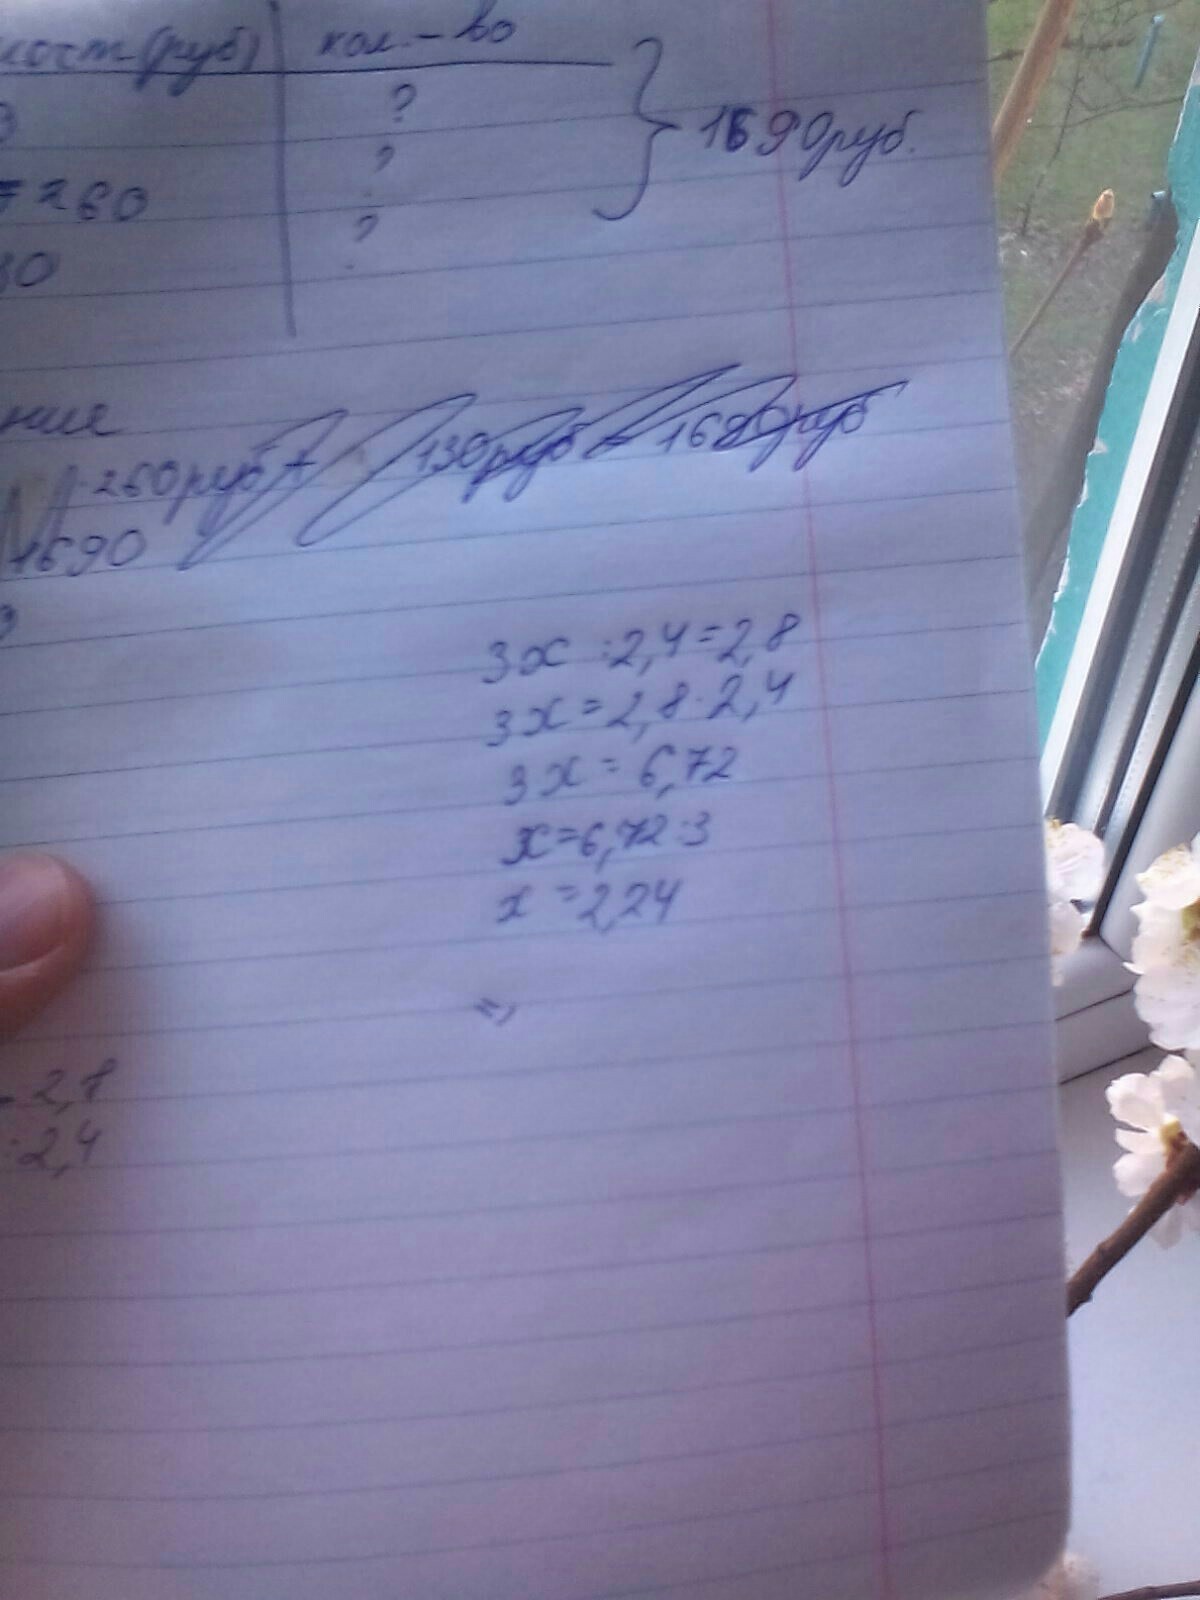 (руб) кол.-во
3 ?
260 ?
30 ?
1690руб.
ния
260руб + 130руб = 1680руб
1690
3
3x :2,4=2,8
3x=2,8·2,4
3x=6,72
x=6,72:3
x=2,24
=,
- 2,8
:2,4